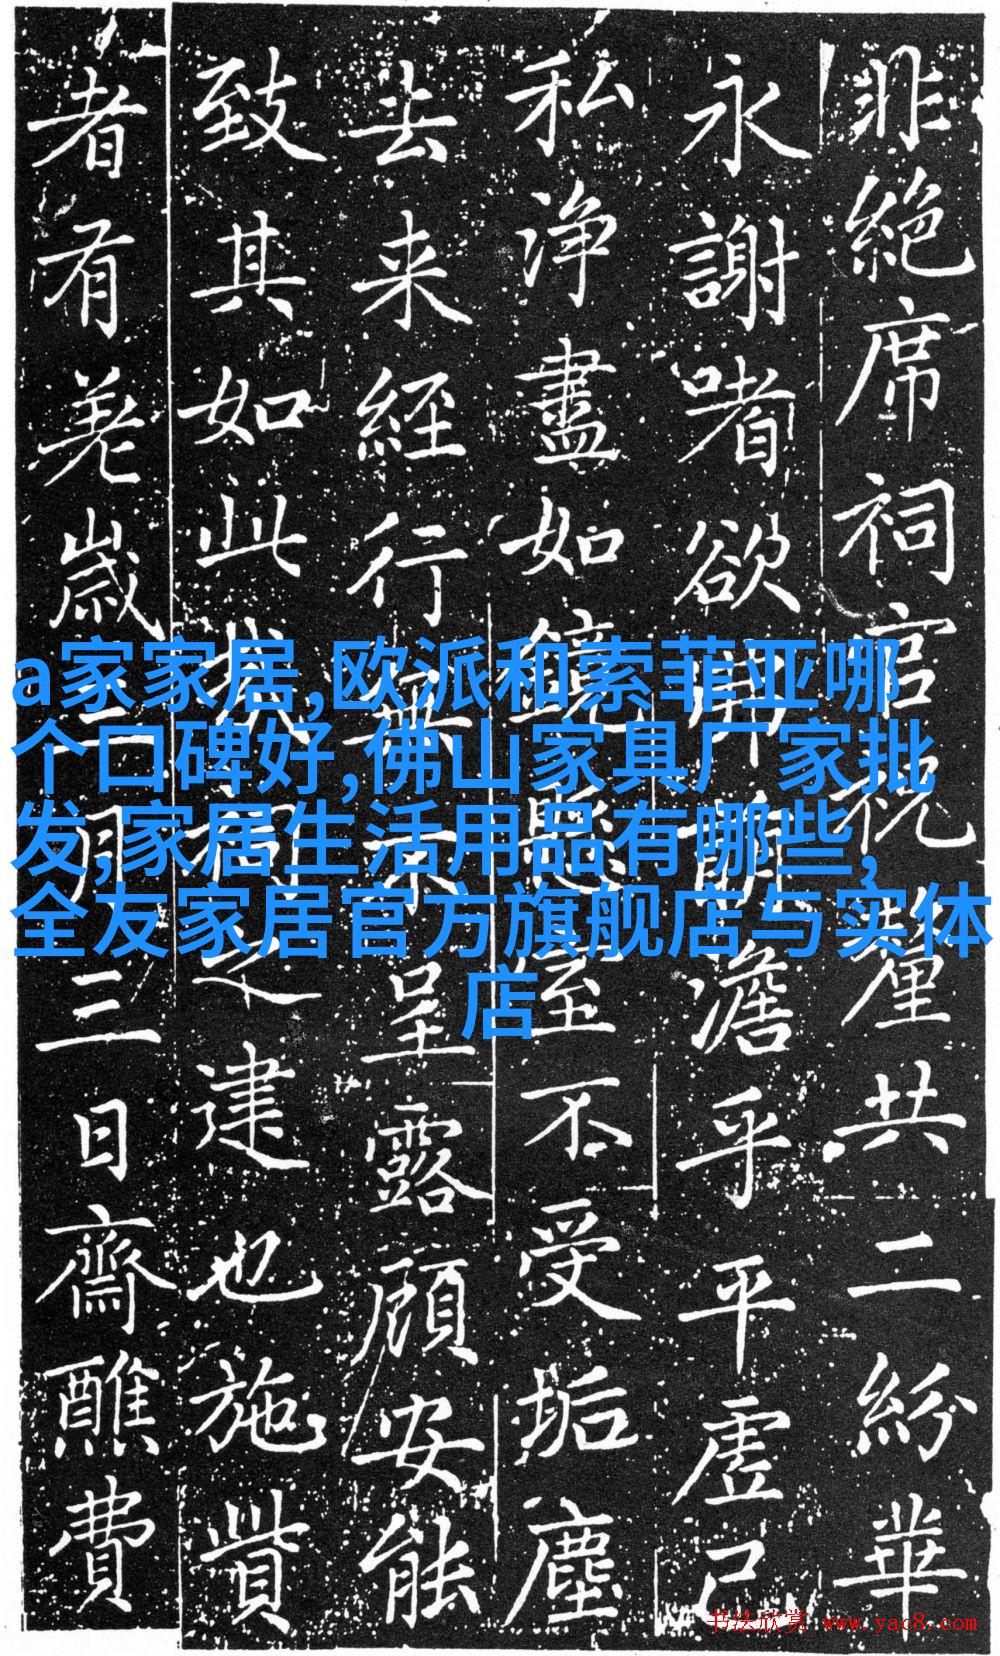 非絶席祠官祝釐共二紛華
永謝嗜欲澹乎平虛己
私浄盡如鏡不受垢塵
去来經行無呈露顧安能
致其如此之建也施貲
者有差歲三月三日齋醮費
a家家居,欧派和索菲亚哪
个口碑好,佛山家具厂家批
发,家居生活用品有哪些,
全友家居官方旗舰店与实体
店
书法欣赏 www.yac8.com